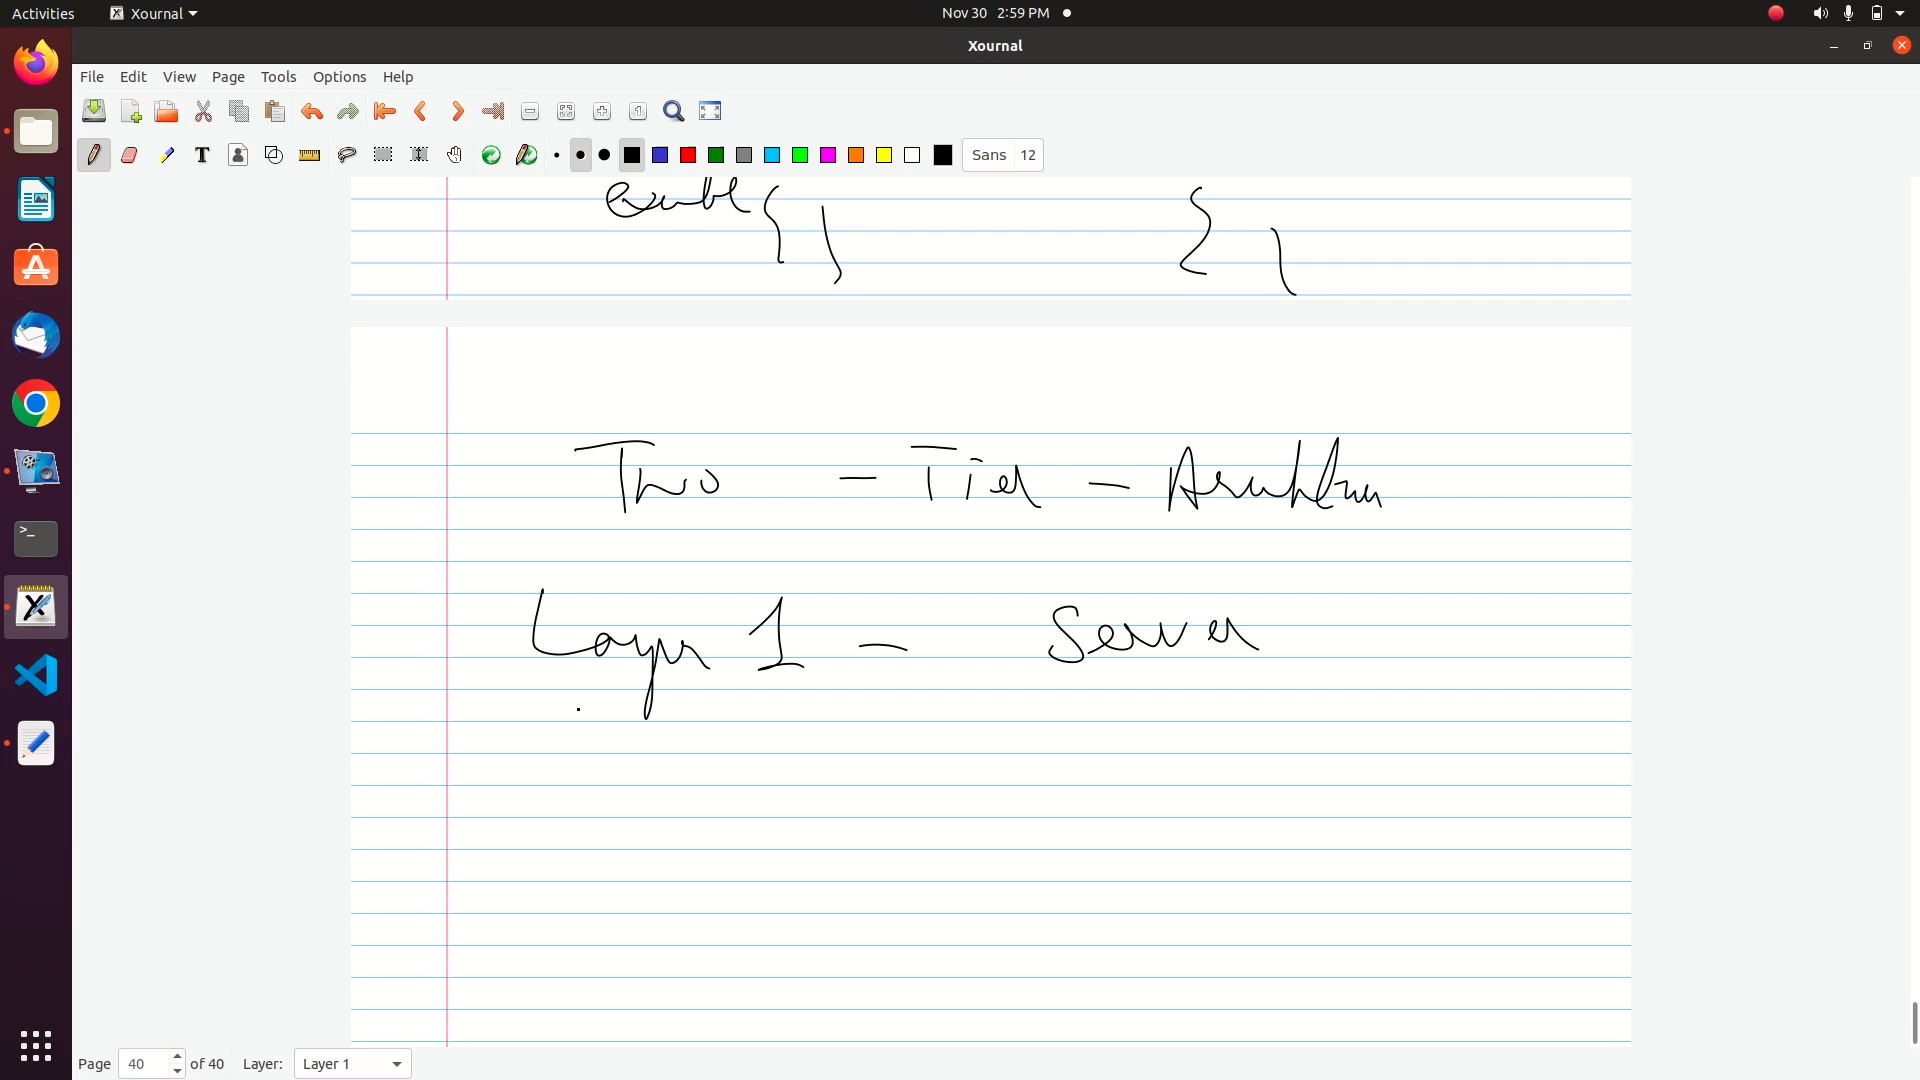 Activities Xournal Nov 30 2:59 PM
Xournal
File Edit View Page Tools Options Help
T Sans 12
Two - Tier -
Layer 1 - Server
Page 40 of 40 Layer: Layer 1